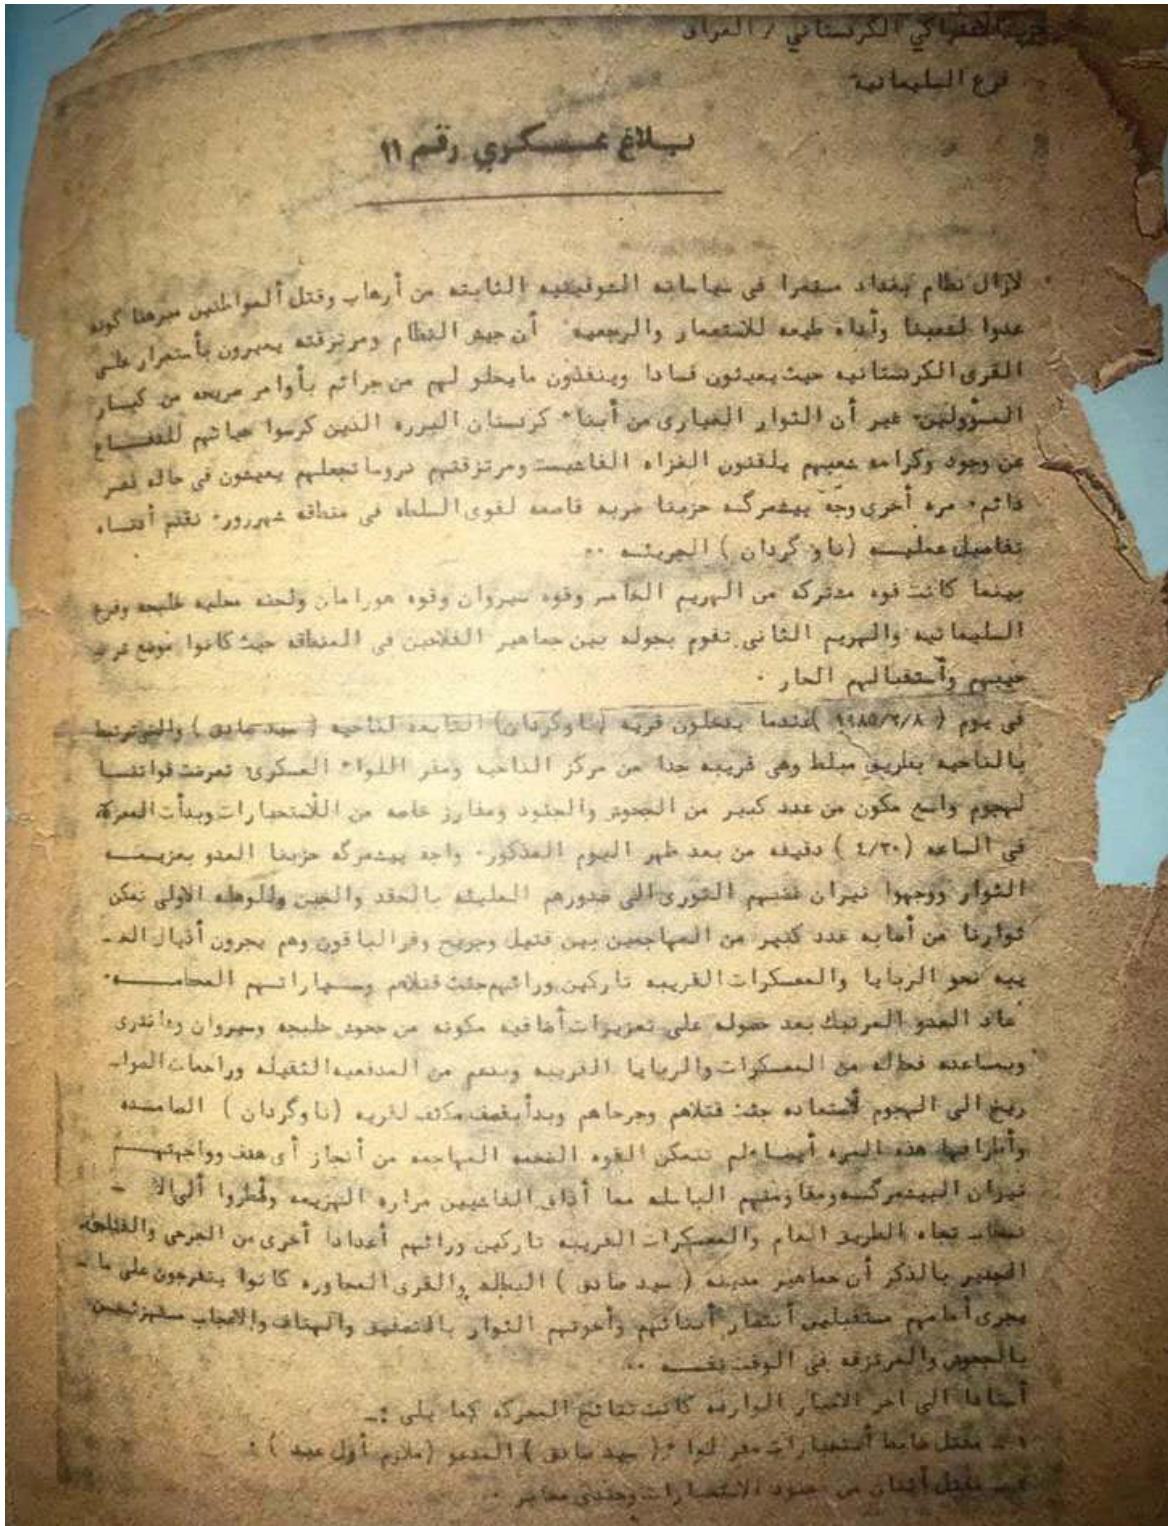 الاشتراكي الكردستاني / العراق
فرع السليمانية
بلاغ عسكري رقم ١١
لازال نظام بغداد مستمرا فى سياساته الشوفينيه الثابته من أرهاب وقتل المواطنين مبرهنا كونه
عدوا لشعبنا وأداه طيعه للاستعمار والرجعيه أن جيش النظام ومرتزقته يعبرون بأستمرار على
القرى الكردستانيه حيث يعيثون فسادا وينفذون مايحلو لهم من جرائم بأوامر صريحه من كبار
المسؤولين٠ غير أن الثوار الغيارى من أبناء كردستان البرره الذين كرسوا حياتهم للدفاع
عن وجود وكرامه شعبهم يلقنون الغزاه الفاشيست ومرتزقتهم دروسا تجعلهم يعيشون فى حاله
دائم٠ مره أخرى وجه پيشمرگه حزبنا ضربه قاصمه لقوى السلطه فى منطقه شهرزور٠ نقدم أدناه
تفاصيل عمليه (ناوگردان) الجريئه ٠٠
بينما كانت قوه مشتركه من الهريم الخامس وقوه سيروان وقوه هورامان ولجنه محليه حلبجه وفرع
السليمانيه والهريم الثانى تقوم بجوله بين جماهير الفلاحين فى المنطقه حيث كانوا موضع
حبهم وأستقبالهم الحار ٠
فى يوم ( ١٩٨٥/٢/٨ )عندما يدخلون قريه (ناوگردان) التابعه لناحيه ( سيد صادق ) والتى ترتبط
بالناحيه بطريق مبلط وهى قريبه جدا من مركز الناحيه ومقر اللواء العسكرى تعرضت قواتنا
لهجوم واسع مكون من عدد كبير من الجحوش والجنود ومفارز خاصه من الأستخبارات وبدأت المعركة
فى الساعه (٤/٣٠ ) دقيقه من بعد ظهر اليوم المذكور٠ واجه پيشمرگه حزبنا العدو بعزيمه
الثوار ووجهوا نيران غضبهم الثورى الى صدورهم المليئه بالحقد والجبن وللوهله الاولى تمكن
ثوارنا من أصابه عدد كبير من المهاجمين بين قتيل وجريح وفر الباقون وهم يجرون أذيال الخـ
يبه نحو الربايا والمعسكرات القريبه تاركين ورائهم جثث قتلاهم وسياراتهم
عاد العدو المرتبك بعد حصوله على تعزيزات أضافيه مكونه من جحوش حلبجه وسيروان
وبمساعده فعاله من المعسكرات والربايا القريبه وبدعم من المدفعيه الثقيله وراجمات الصوا
ريخ الى الهجوم لأستعاده جثث قتلاهم وجرحاهم وبدأ بقصف مكثف لقريه (ناوگردان) الصامده
وأطرافها هذه المره أيضا لم تتمكن القوه الضخمه المهاجمه من أنجاز أى هدف وواجهتهم
نيران الپيشمرگه ومقاومتهم الباسله مما أذاق الفاشيين مراره الهزيمه وأضطروا الى الا ـ
نسحاب تجاه الطريق العام والمعسكرات القريبه تاركين ورائهم أعدادا أخرى من الجرحى والقتلى
الجدير بالذكر أن جماهير مدينه ( سيد صادق ) البطله والقرى المجاوره كانوا يتفرجون على ما ـ
يجرى أمامهم مستقبلين أنتصار أبنائهم وأخوتهم الثوار بالتصفيق والهتاف والاعجاب مستهزئين
بالجحوش والمرتزقه فى الوقت نفسه ٠٠
أستنادا الى اخر الاخبار الوارده كانت نتائج المعركه كما يلى :ـ
١ـ مقتل ضابط أستخبارات مقر لواء ( سيد صادق ) المدعو (ملازم أول عيد ) ٠
٢ـ مقتل أثنان من جنود الاستخبارات وجندى مخابر ٠٠